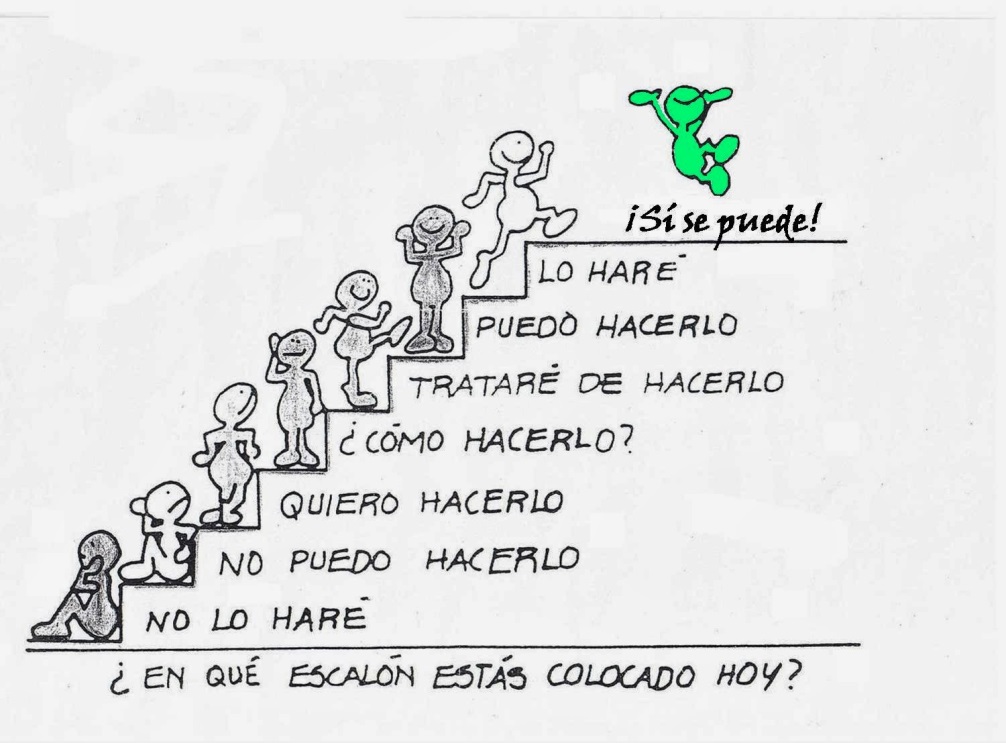 ¡Sí se puede!
LO HARÉ
PUEDO HACERLO
TRATARÉ DE HACERLO
¿CÓMO HACERLO?
QUIERO HACERLO
NO PUEDO HACERLO
NO LO HARÉ
¿EN QUÉ ESCALÓN ESTÁS COLOCADO HOY?